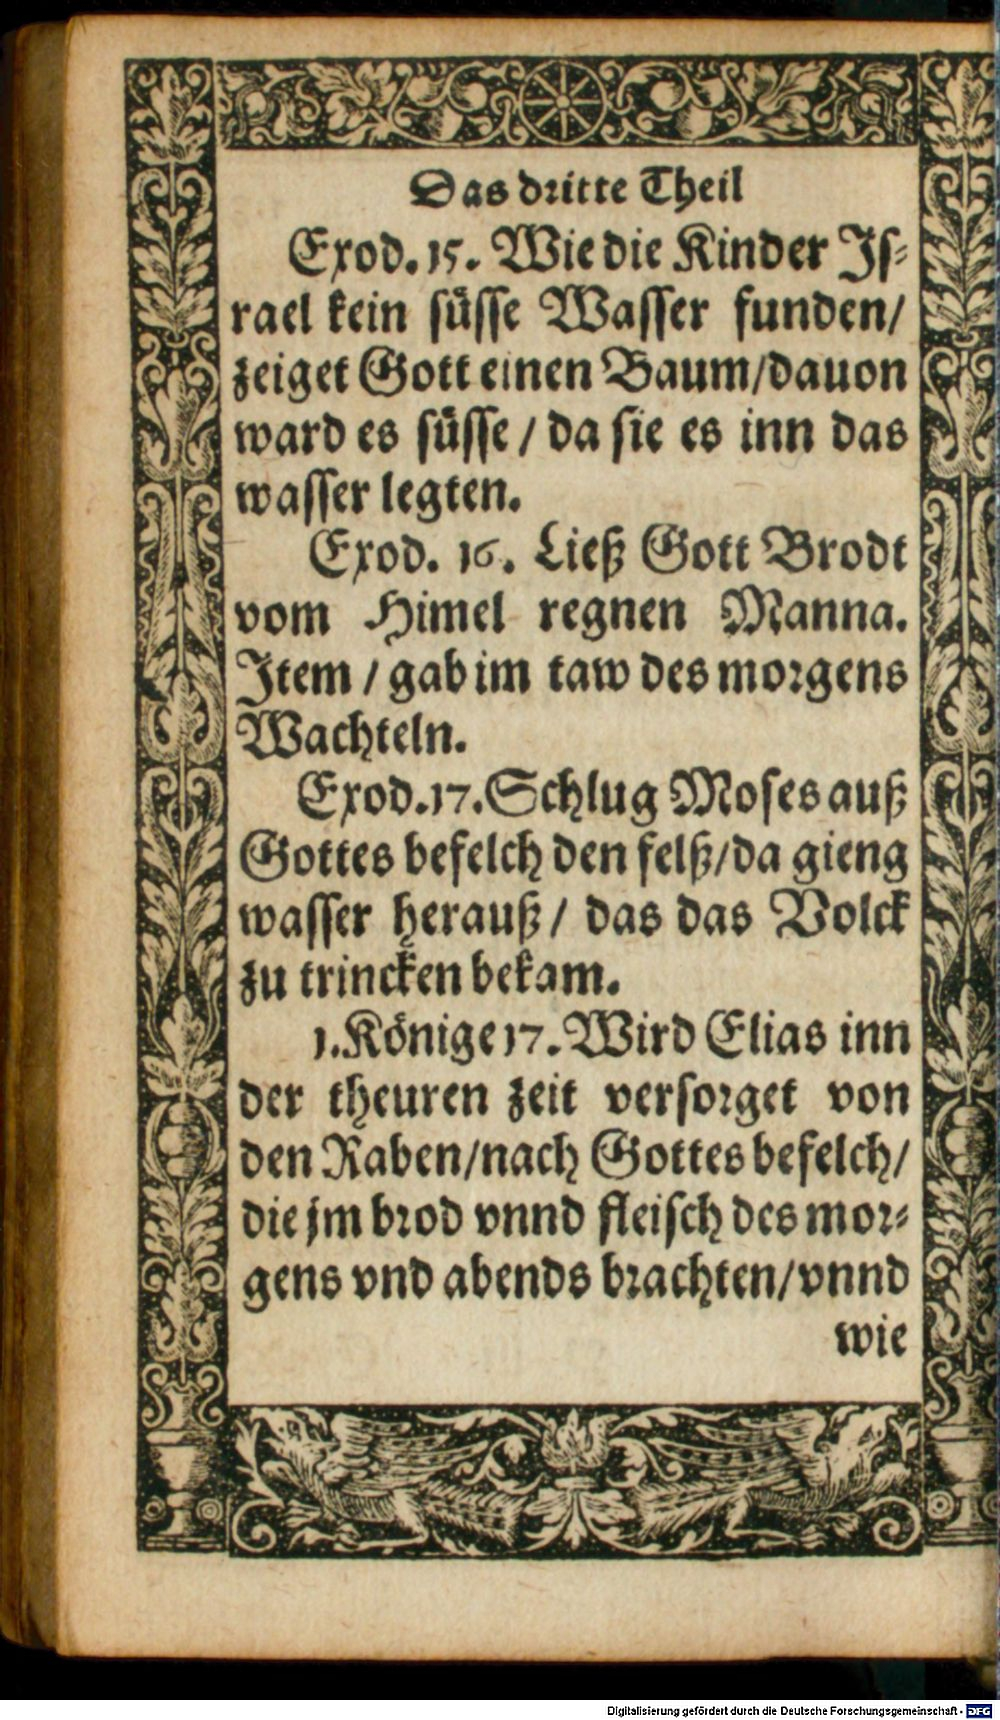 Das dritte Theil
Exod. 15. Wie die Kinder Jſ⸗
rael kein ſuͤſſe Waſſer funden/
zeiget Gott einen Baum/dauon
ward es ſuͤſſe / da ſie es inn das
waſſer legten.
Exod. 16. Ließ Gott Brodt
vom Himel regnen Manna.
Jtem / gab im taw des morgens
Wachteln.
Exod.17.Schlug Moſes auß
Gottes befelch den felß/da gieng
waſſer herauß / das das Volck
zu trincken bekam.
1.Koͤnige 17. Wird Elias inn
der theuren zeit verſorget von
den Raben/nach Gottes befelch/
die jm brod vnnd fleiſch des mor⸗
gens vnd abends brachten/vnnd
wie
Digitalisierung gefördert durch die Deutsche Forschungsgemeinschaft - DFG